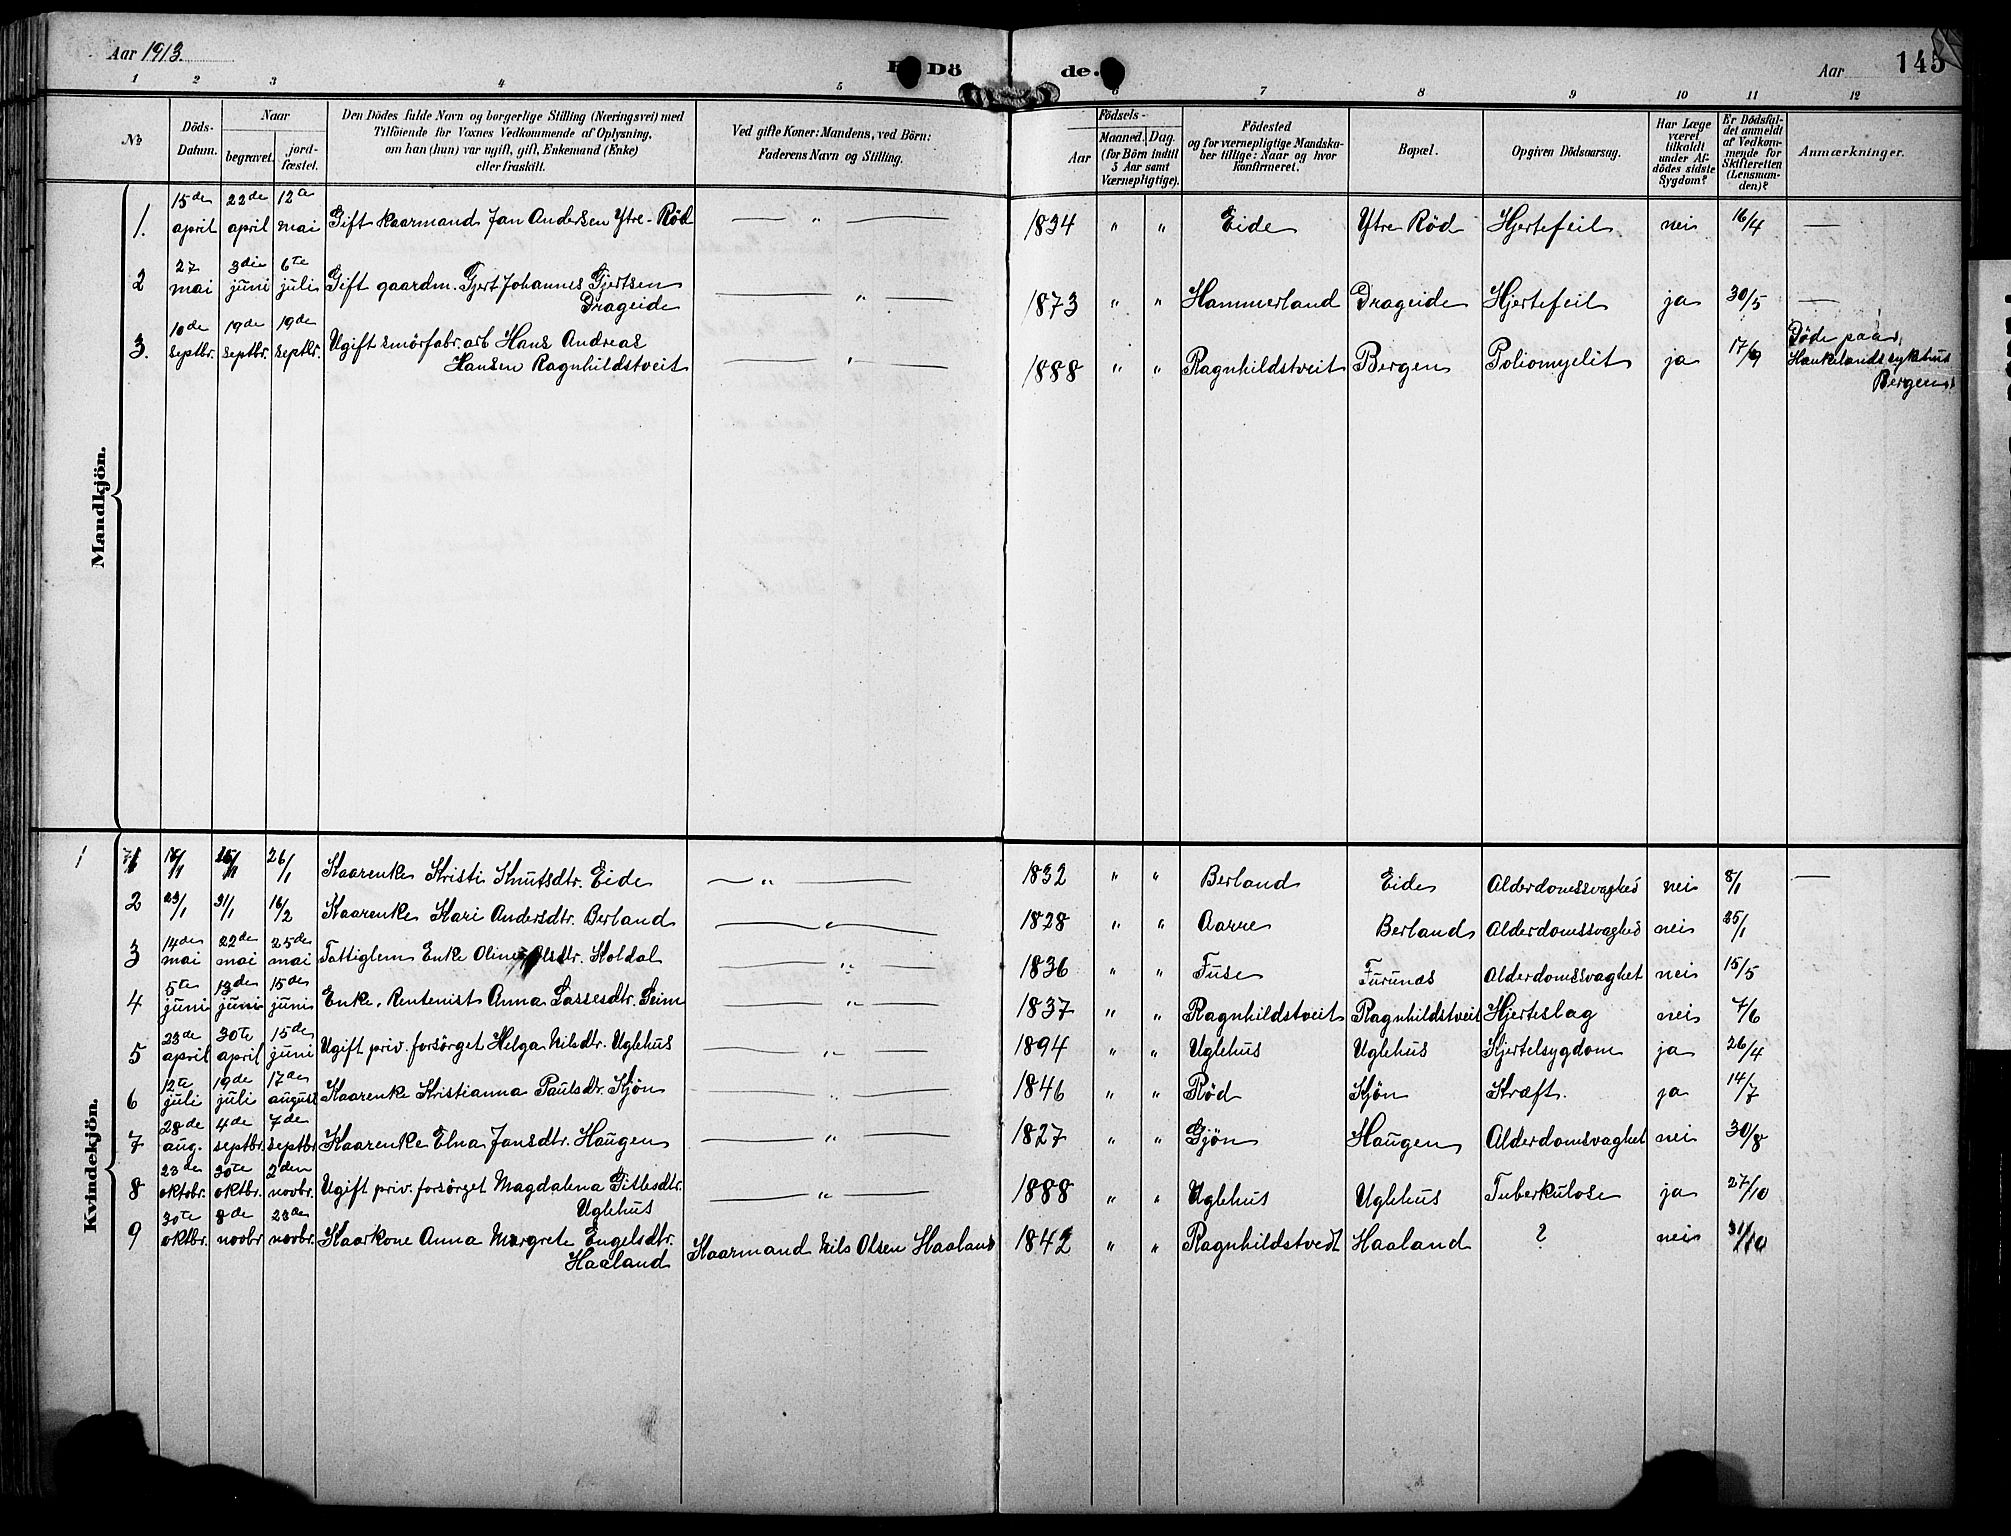 Aar 1913.
Dö de.
Aar 145
1 2 3 4 5 6 7 8 9 10 11 12
No
Döds-Datum.
Naar begravet. jordfæstet.
Den Dödes fulde Navn og borgerlige Stilling (Næringsvei) med
Tilföiende for Voxnes Vedkommende af Oplysning,
om han (hun) var ugift, gift, Enkemand (Enke)
eller fraskilt.
Ved gifte Koner: Mandens, ved Börn:
Faderens Navn og Stilling.
Födsels-
Aar Maaned. Dag.
(for Börn indtil
5 Aar samt
Værnepligtige).
Födested
og for værnepligtige Mandska-
ber tillige: Naar og hvor
konfirmeret.
Bopæl.
Opgiven Dödsaarsag.
Har Læge
været
tilkaldt
under Af-
dödes sidste
Sygdom?
Er Dödsfal-
det anmeldt
af Vedkom-
mende for
Skifteretten
(Lensman-
den)?
Anmærkninger.
Mandkjön.
1. 15de april 22de april 12te mai Gift kaarmand Jan Andersen Ytre-Röd — " — 1834 " " Eide Ytre Röd Hjertefeil nei 16/4 —
2 27 mai 3die juni 6te juli Gift gaardm. Gjert Johannes Gjertsen
Drageide — " — 1873 " " Hammerland Drageide Hjertefeil ja 30/5 —
3. 10de septbr. 19de septbr. 19de septbr. Ugift smörfabr.arb Hans Andreas
Hansen Ragnhildstveit — " — 1888 " " Ragnhildstveit Bergen Poliomyelit ja 17/9 Döde paa
Haukelands sykehus
Bergen
Kvindekjön.
1 26/1 Kaarenke Kristi Knutsdtr. Eide — " — 1832 " " Berland Eide Alderdomssvaghed nei 8/1 —
2 23/1 31/1 16/2 Kaarenke Kari Andersdtr. Berland — " — 1828 " " Aarre Berland Alderdomssvaghed nei 25/1
3 14de mai 22de mai 25de mai Fattiglem Enke Oline Olsdtr. Koldal — " — 1836 " " Fuse Furunes Alderdomssvaghet nei 15/5
4 5te juni 13de juni 15de juni Enke, Rentenist Anna Lassesdtr. Seim — " — 1837 " " Ragnhildstveit Ragnhildstveit Hjerteslag nei 7/6
5 23de april 30te april 15de juni Ugift priv. forsörget Helga Nilsdtr. Uglehus — " — 1894 " " Uglehus Uglehus Kjertelsygdom ja 26/4
6 12te juli 19de juli 17de august Kaarenke Kristianna Paulsdtr. Kjön — " — 1846 " " Röd Kjön Kræft. ja 14/7
7 28de aug. 4de septbr. 7de septbr. Kaarenke Elna Jansdtr. Haugen — " — 1827 " " Gjön Haugen Alderdomsvaghet nei 30/8
8 23de oktobr. 30te oktbr. 2den novbr. Ugift priv. forsörget Magdalena Gitlesdtr.
Uglehus — " — 1888 " " Uglehus Uglehus Tuberkulose ja 27/10
9 30te oktbr. 8de novbr 23de novbr. Kaarkone Anna Margrete Engelsdtr.
Haaland Kaarmand Nils Olsen Haaland 1842 " " Ragnhildstvedt Haaland ? nei 31/10